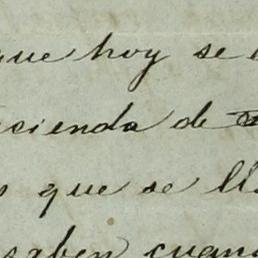 que hoy se
cienda de
que se
saben cuan